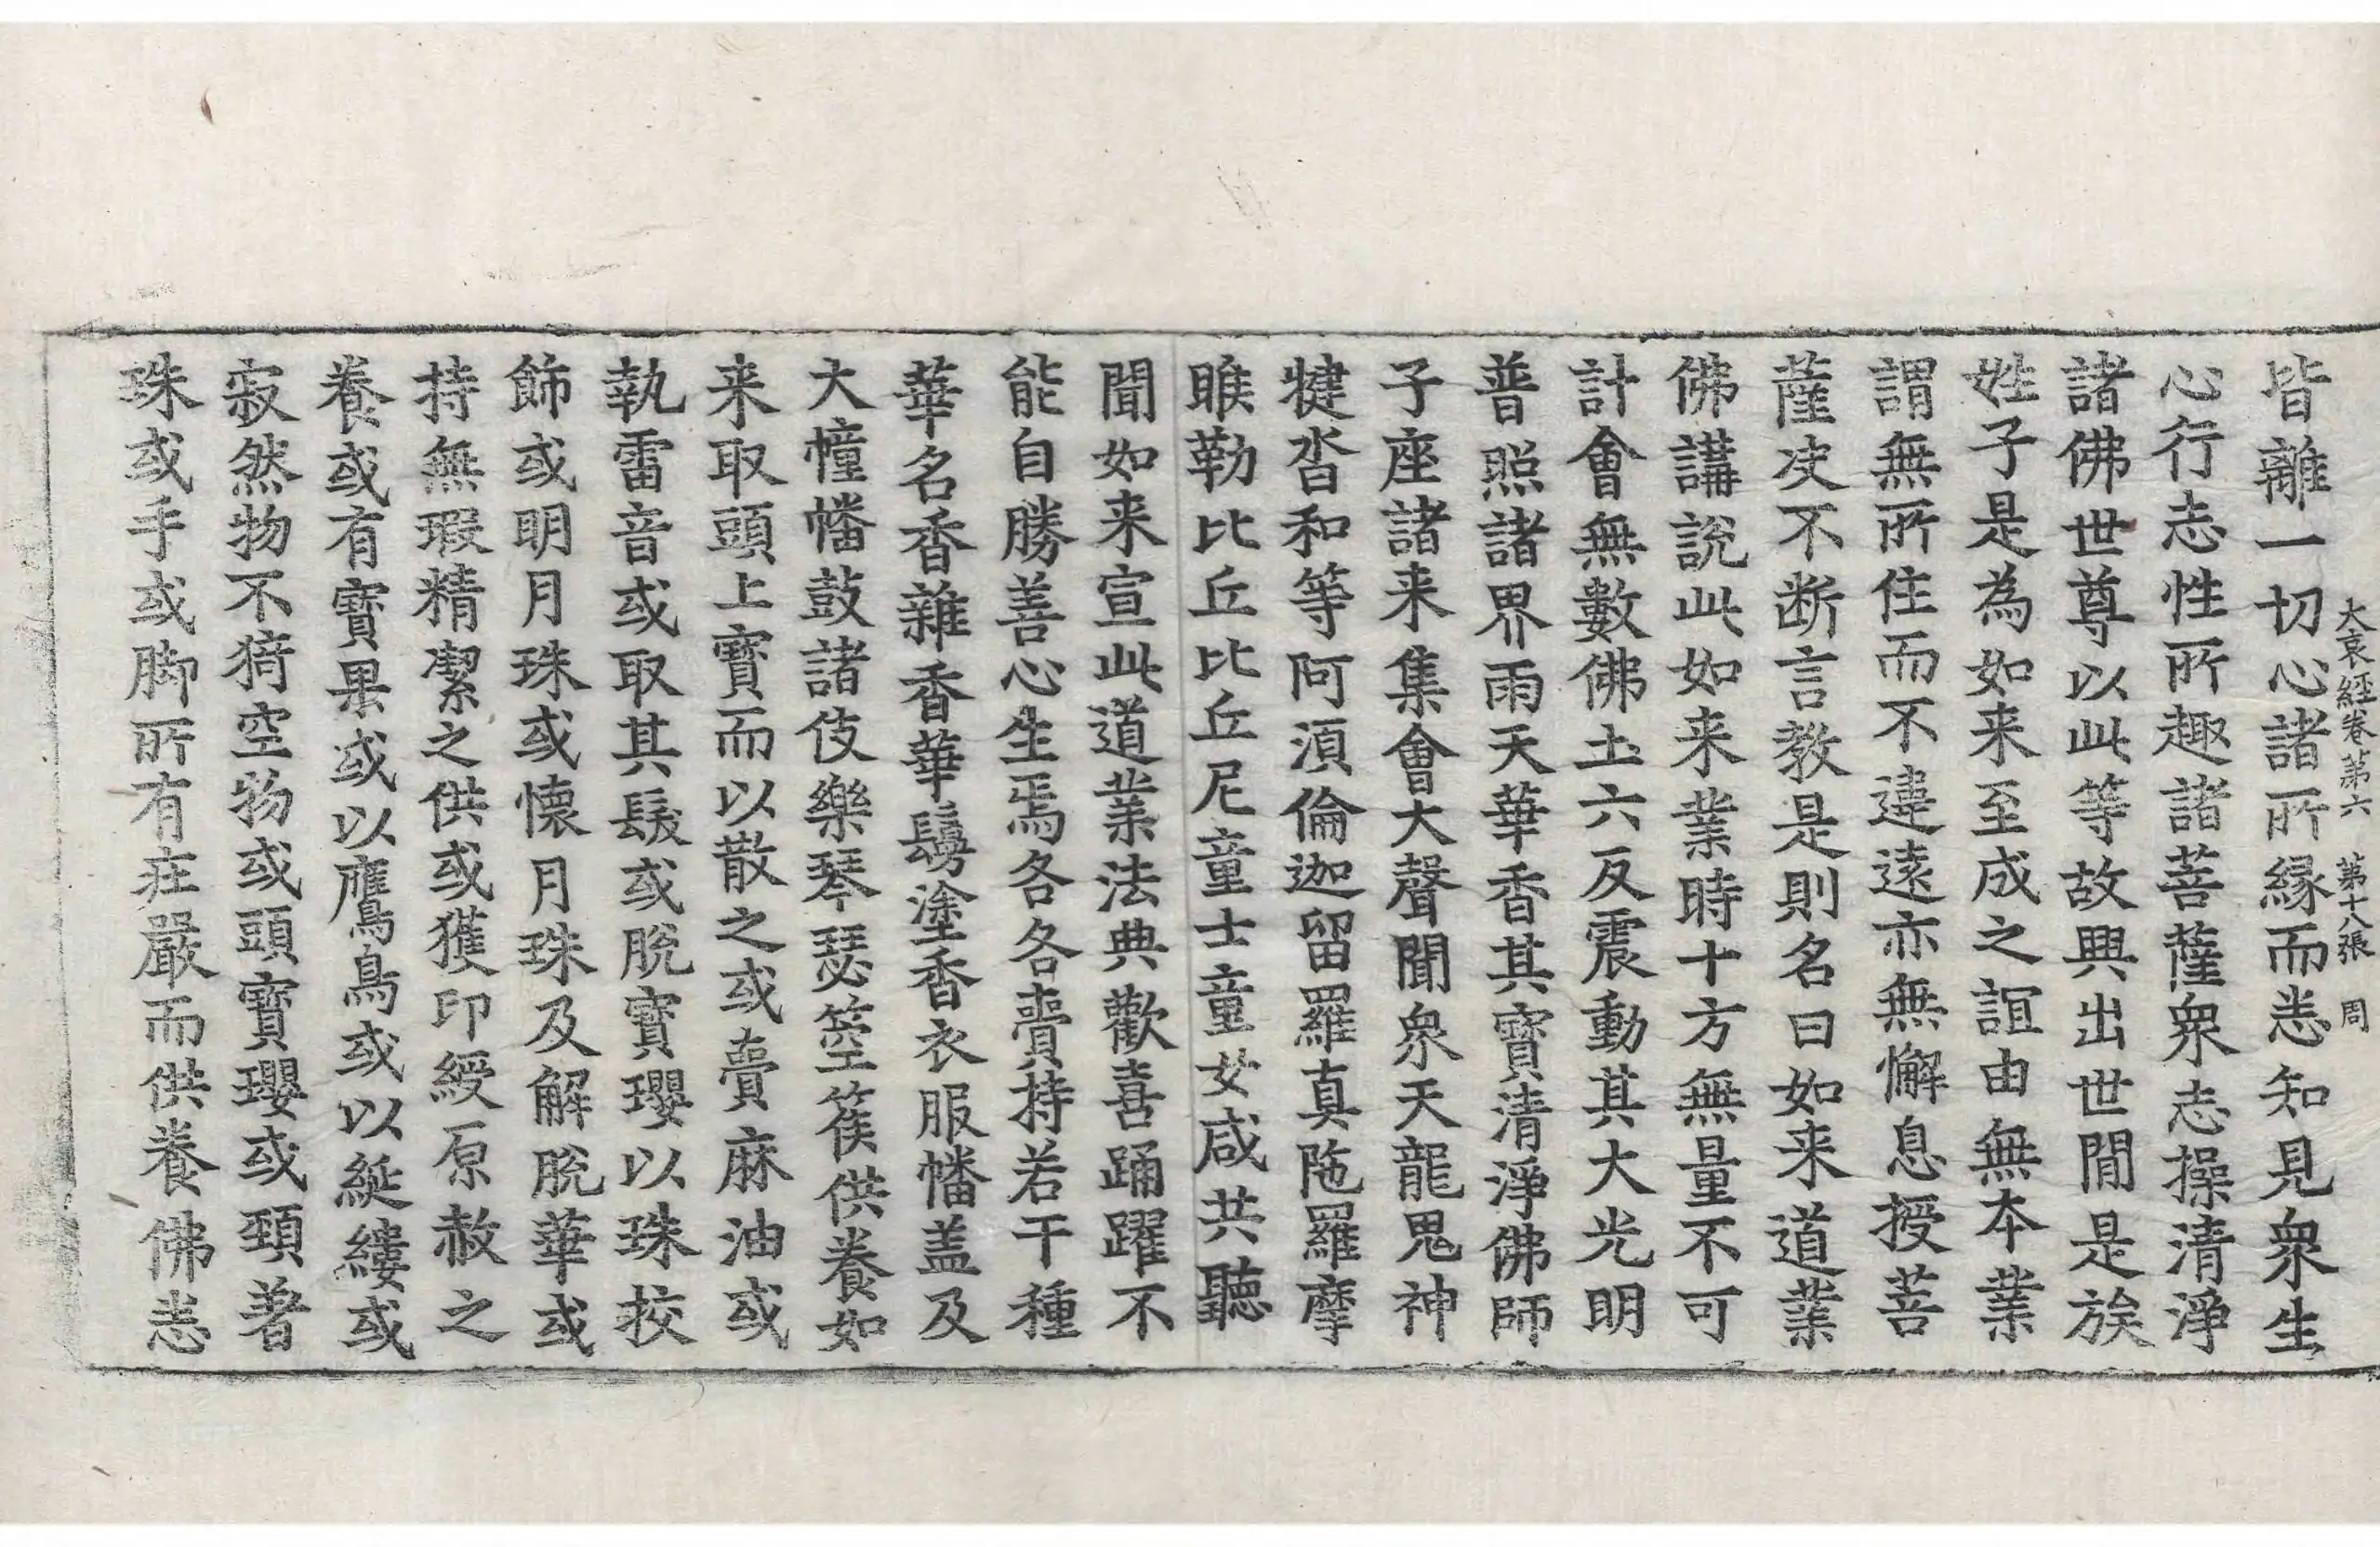 大哀経卷第六　第十八張　周
皆離一切心諸所縁而悉知見衆生
心行志性所趣諸菩薩衆志操清淨
諸佛世尊以此等故興出世間是族
姓子是為如来至成之誼由無本業
謂無所住而不違遠亦無懈息授菩
薩决不断言教是則名曰如来道業
佛講說此如来業時十方無量不可
計會無數佛土六反震動其大光明
普照諸界雨天華香其寶清淨佛師
子座諸来集會大聲聞衆天龍鬼神
犍沓和等阿須倫迦留羅真陁羅摩
睺勒比丘比丘尼童士童女咸共聽
聞如来宣此道業法典歡喜踊躍不
能自勝善心生焉各各賷持若干種
華名香雜香華鬘塗香衣服幡盖及
大幢幡鼓諸伎樂琴瑟箜篌供養如
来取頭上寶而以散之或賣麻油或
執雷音或取其髲或脫寶瓔以珠挍
飾或明月珠或懐月珠及解脫華或
持無瑕精潔之供或獲印綬原赦之
養或有寶果或以鷹鳥或以綖縷或
寂然物不猗空物或頭寶瓔或頸著
珠或手或脚所有庄嚴而供養佛悉